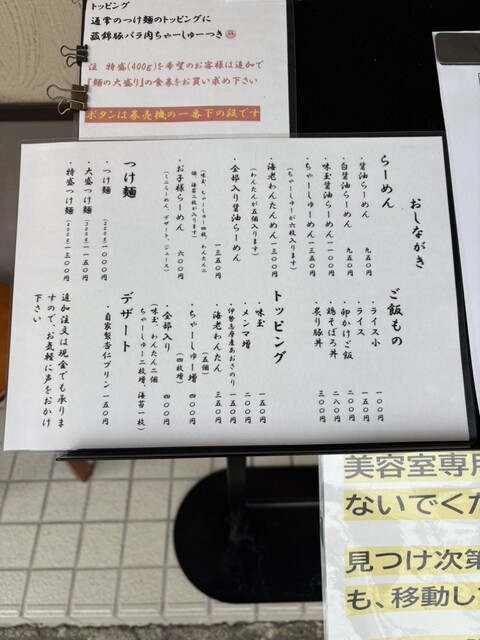 トッピング
通常のつけ麺のトッピングに
菰錦豚バラ肉ちゃーしゅーつき
注 特盛(400g)を希望のお客様は追加で
『麺の大盛り』の食券をお買い求め下さい
ボタンは券売機の一番下の段です
おしながき
らーめん
・醤油らーめん 九五〇円
・白醤油らーめん 九五〇円
・味玉醤油らーめん 一一〇〇円
・ちゃーしゅーめん 一三五〇円
(ちゃーしゅーが六枚入ります)
・海老わんたんめん 一三〇〇円
(わんたんが五個入ります)
・全部入り醤油らーめん 一三五〇円
(味玉、ちゃーしゅー四枚、わんたん二個、海苔二枚が入ります)
・お子様らーめん 六〇〇円
(ミニらーめん、デザート、ジュース)
つけ麺
・つけ麺 (200g) 一〇〇〇円
・大盛つけ麺 (300g) 一一五〇円
・特盛つけ麺 (400g) 一三〇〇円
ご飯もの
・ライス小 一〇〇円
・ライス 一五〇円
・卵かけご飯 二〇〇円
・鶏そぼろ丼 二八〇円
・炙り豚丼 三〇〇円
トッピング
・味玉 一五〇円
・メンマ増 二〇〇円
・伊勢志摩産あおさのり 一五〇円
・海老わんたん 三五〇円
(五個)
・ちゃーしゅー増 四〇〇円
(四枚増)
・全部入り 四〇〇円
(味玉、わんたん二個
ちゃーしゅー二枚増、海苔一枚)
デザート
・自家製杏仁プリン 一五〇円
追加注文は現金でも承りま
すので、お気軽に声をおかけ
下さい
美容室専用
ないでくだ
見つけ次第
も、移動し